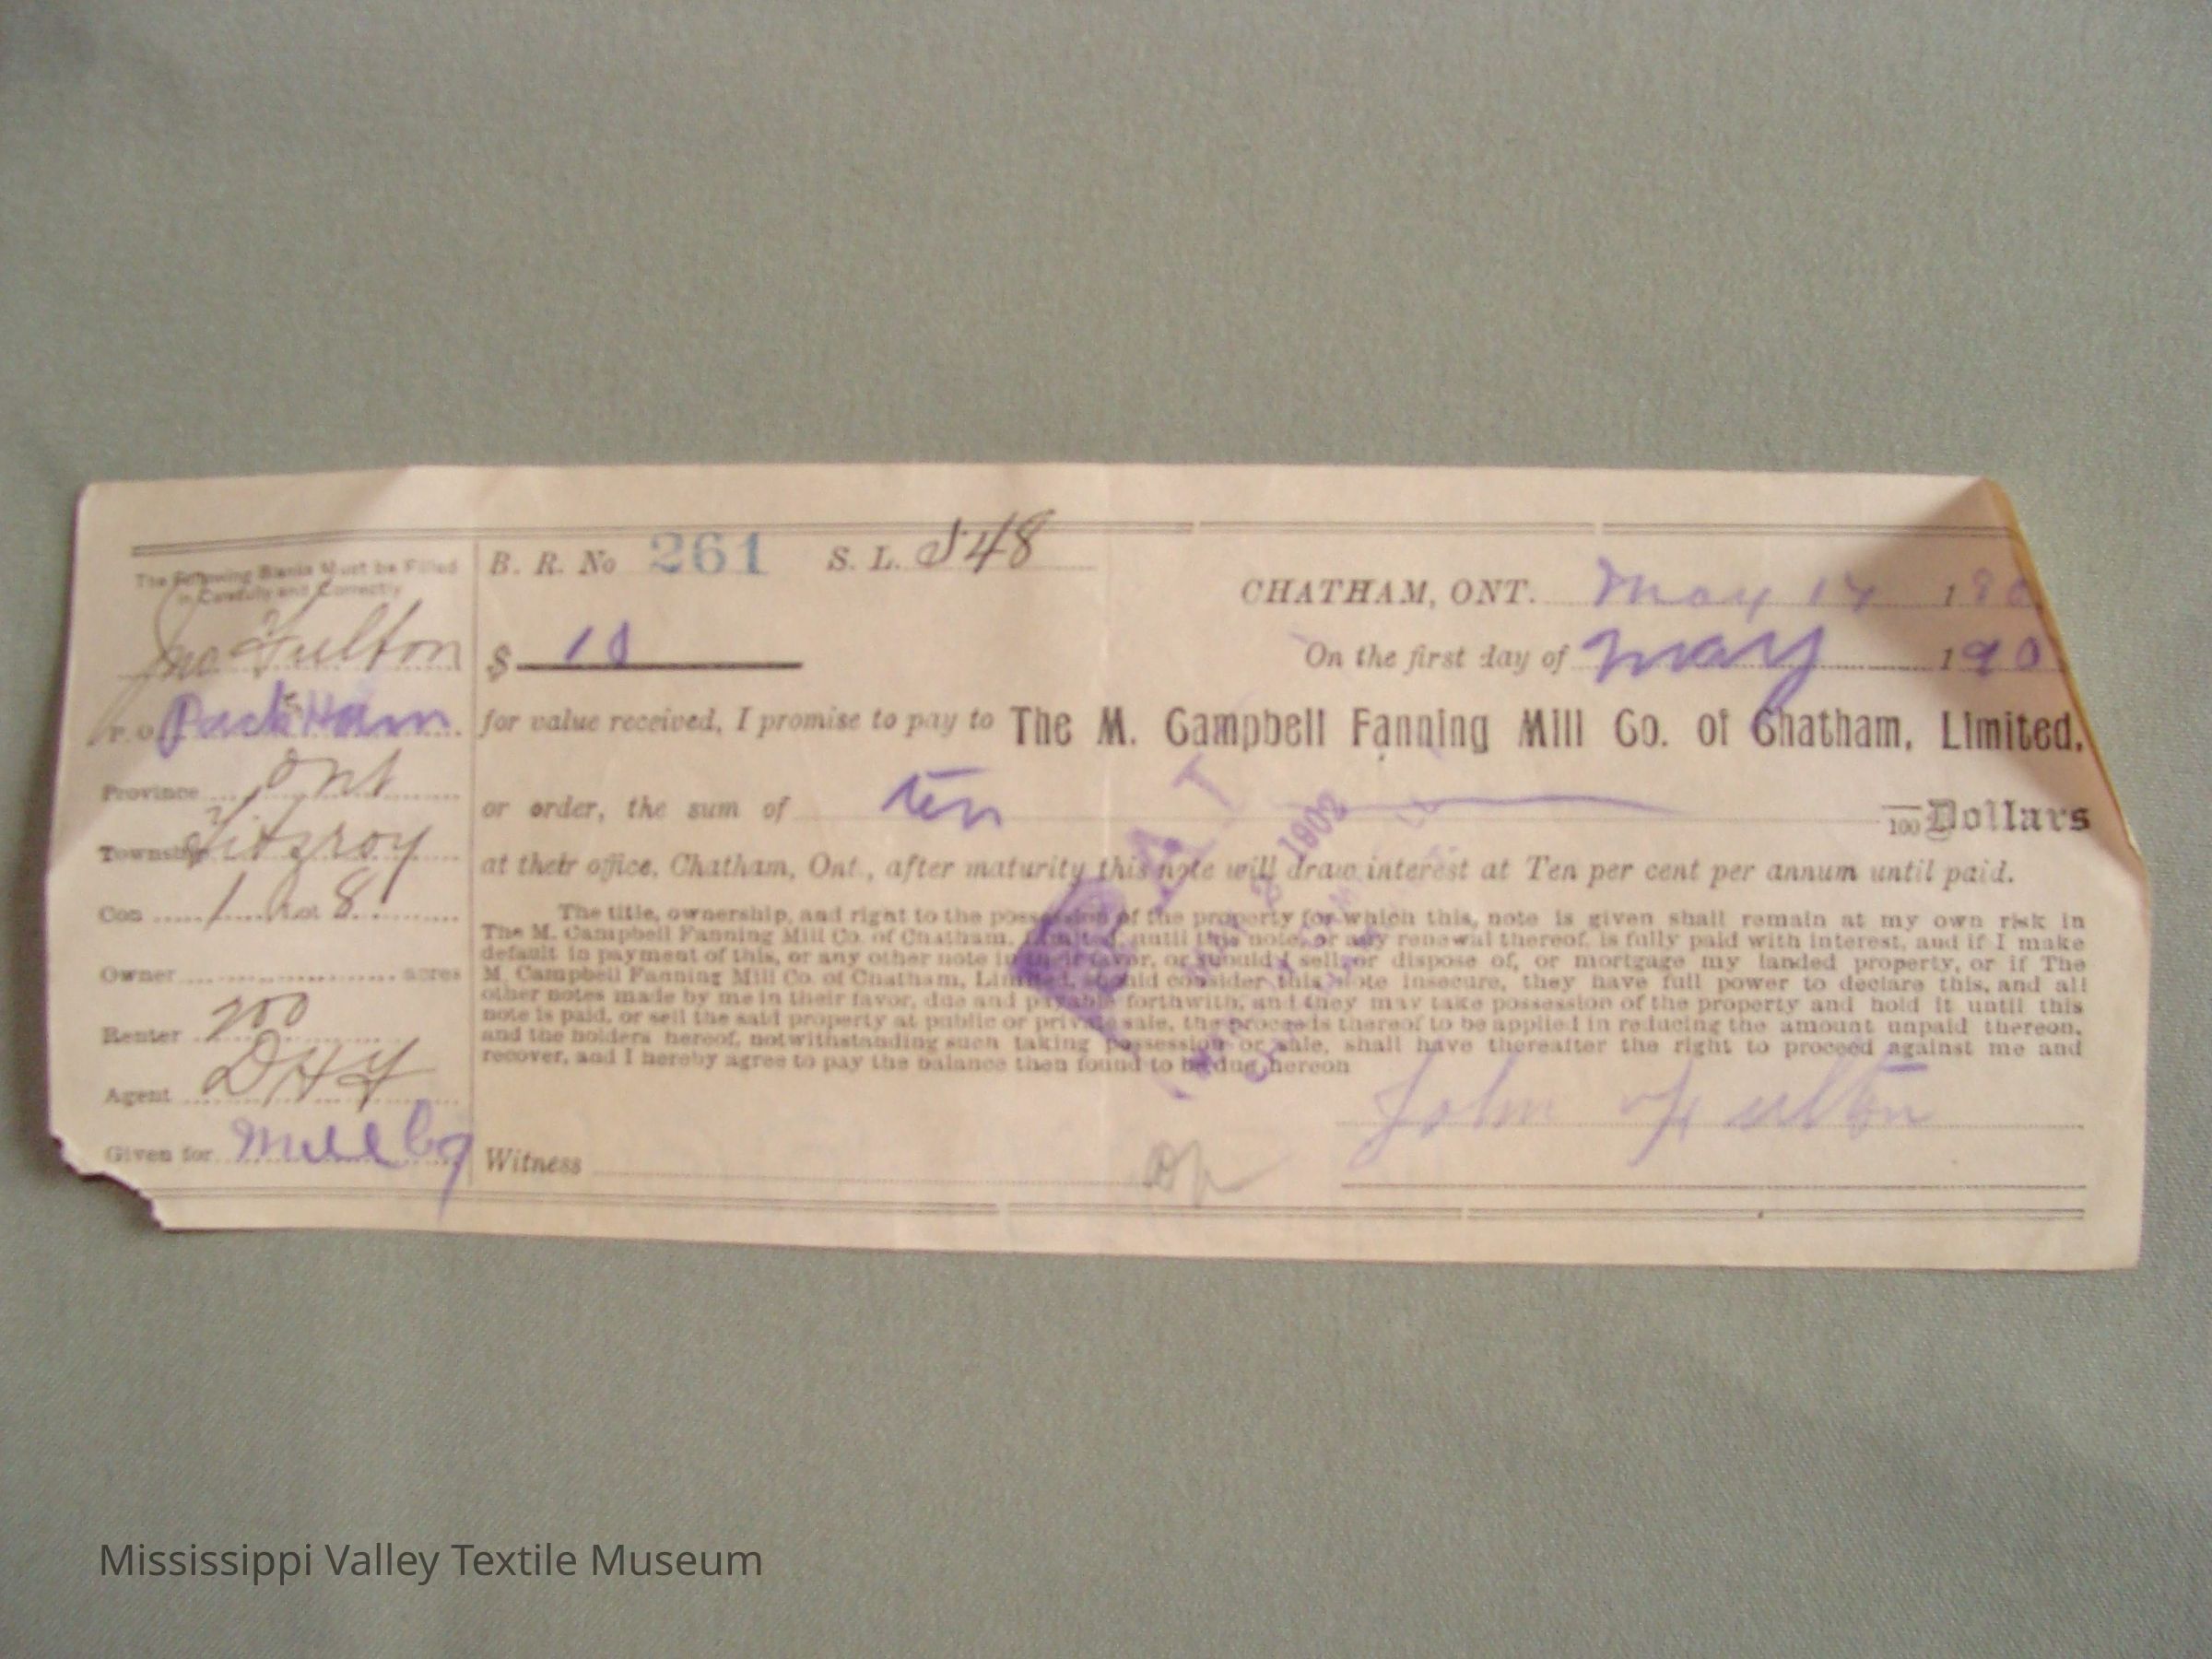 The Following Blanks Must be Filled
in Carefully and Correctly
Jno Fulton
P. O. PackHam
Province Ont
Township Fitzroy
Con 1 Lot 8
Owner acres
Renter 200
Agent DHY
Given for
B. R. No 261 S. L. 548
CHATHAM, ONT. May 190
$ 10
On the first day of May 190
for value received, I promise to pay to The M. Campbell Fanning Mill Co. of Chatham, Limited,
or order, the sum of ten 100 Dollars
at their office, Chatham, Ont., after maturity this note will draw interest at Ten per cent per annum until paid.
The title, ownership, and right to the possession of the property for which this note is given shall remain at my own risk in
The M. Campbell Fanning Mill Co. of Chatham, Limited, until this note, or any renewal thereof, is fully paid with interest, and if I make
default in payment of this, or any other note in their favor, or should I sell or dispose of, or mortgage my landed property, or if The
M. Campbell Fanning Mill Co. of Chatham, Limited, should consider this note insecure, they have full power to declare this, and all
other notes made by me in their favor, due and payable forthwith, and they may take possession of the property and hold it until this
note is paid, or sell the said property at public or private sale, the proceeds thereof to be applied in reducing the amount unpaid thereon,
and the holders hereof, notwithstanding such taking possession or sale, shall have thereafter the right to proceed against me and
recover, and I hereby agree to pay the balance then found to be due hereon
1902
John Fulton
Witness
Mississippi Valley Textile Museum